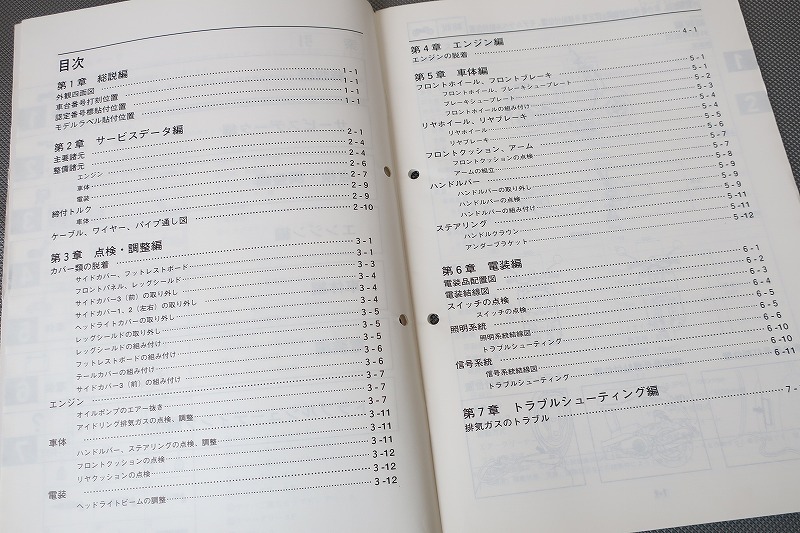 目次
第1章 総説編
外観四面図 1-1
車台番号打刻位置 1-1
認定番号標貼付位置 1-1
モデルラベル貼付位置 1-1
第2章 サービスデータ編
主要諸元 2-1
整備諸元 2-4
エンジン 2-4
車体 2-6
電装 2-7
締付トルク 2-9
車体 2-9
ケーブル、ワイヤー、パイプ通し図 2-10
第3章 点検・調整編
カバー類の脱着 3-1
サイドカバー、フットレストボード 3-1
フロントパネル、レッグシールド 3-3
サイドカバー3（前）の取り外し 3-4
サイドカバー1、2（左右）の取り外し 3-4
ヘッドライトカバーの取り外し 3-4
レッグシールドの取り外し 3-5
レッグシールドの組み付け 3-5
フットレストボードの組み付け 3-5
テールカバーの組み付け 3-6
サイドカバー3（前）の組み付け 3-6
エンジン 3-7
オイルポンプのエアー抜き 3-7
アイドリング排気ガスの点検、調整 3-7
車体 3-11
ハンドルバー、ステアリングの点検、調整 3-11
フロントクッションの点検 3-11
リヤクッションの点検 3-12
電装 3-12
ヘッドライトビームの調整 3-12
第4章 エンジン編
エンジンの脱着 4-1
第5章 車体編
フロントホイール、フロントブレーキ 5-1
フロントホイール、ブレーキシュープレート 5-1
ブレーキシュープレート 5-2
フロントホイールの組み付け 5-3
リヤホイール、リヤブレーキ 5-4
リヤホイール 5-4
リヤブレーキ 5-5
フロントクッション、アーム 5-6
フロントクッションの点検 5-7
アームの組立 5-7
ハンドルバー 5-8
ハンドルバーの取り外し 5-9
ハンドルバーの点検 5-9
ハンドルバーの組み付け 5-9
ステアリング 5-11
ハンドルクラウン 5-11
アンダーブラケット 5-12
第6章 電装編
電装品配置図 6-1
電装結線図 6-2
スイッチの点検 6-3
スイッチの点検 6-4
照明系統 6-5
照明系統結線図 6-5
トラブルシューティング 6-6
信号系統 6-10
信号系統結線図 6-10
トラブルシューティング 6-11
第7章 トラブルシューティング編
排気ガスのトラブル 7-